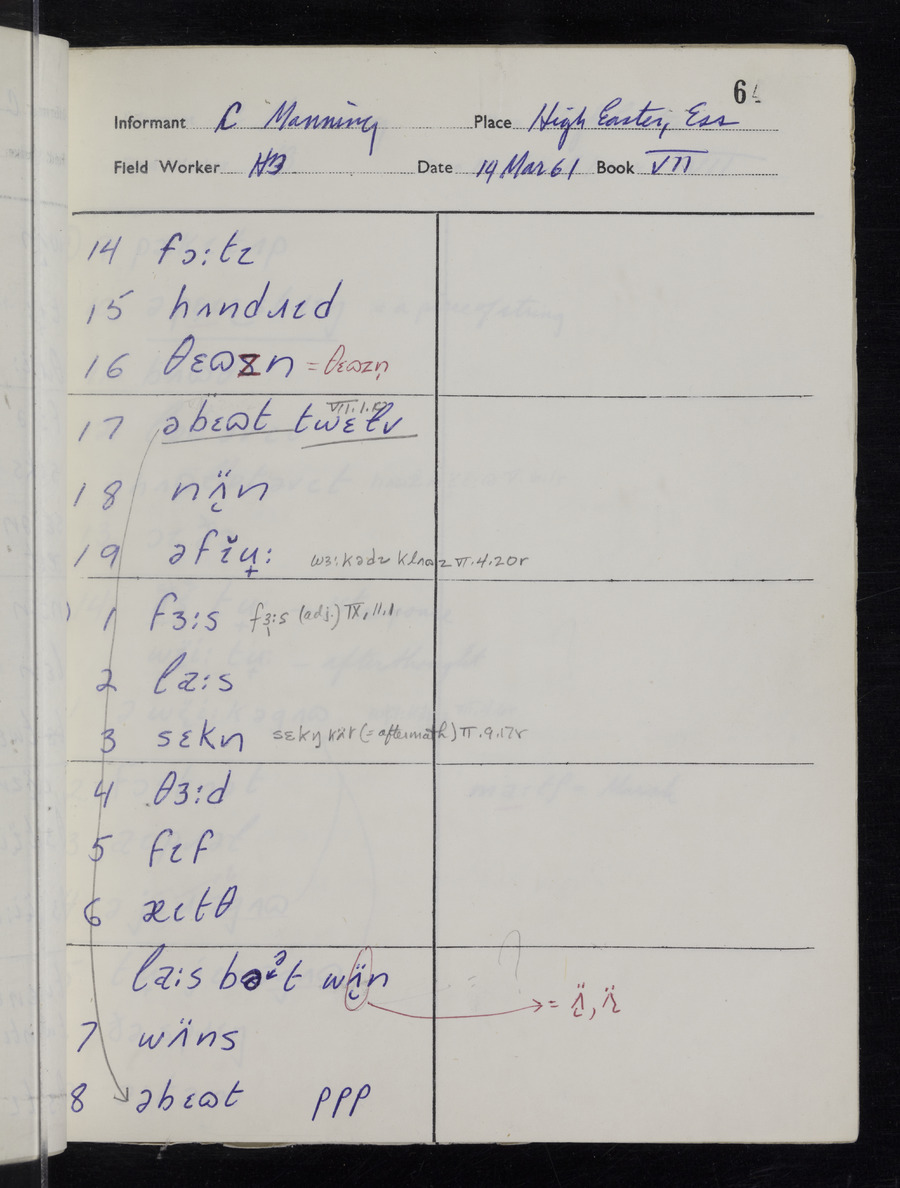 6
Informant R Manning Place High Easter, Ess
Field Worker HB Date 14 Mar 61 Book VII
14 fɔ:tɪ
15 hʌndɹɪd
16 θɛɷzn = θɛɷzn̩
17 əbɛɷt twɛlv VII.1.17
18 nʌ̈ɪn
19 əfɪ̆u̟: wɜ:kədɪ klʌɷz VI.4.20r
1 fɜ:s fɜ:s (adj.) IX.11.1
2 la:s
3 sɛkn (= aftermath) II.9.17r
4 θɜ:d
5 fɪf
6 æɪtθ
la:s bət wʌ̈n
= ʌ̈ɪ, ʌ̈
7 wʌ̈ns
8 əbɛɷt ppp